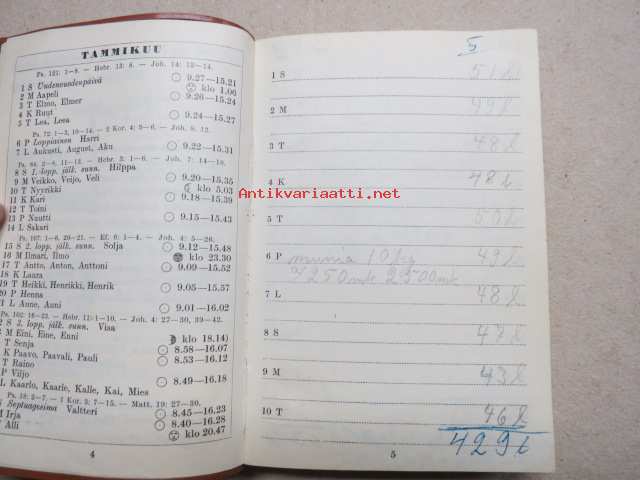 TAMMIKUU
Ps. 121: 1—8. — Hebr. 13: 8. — Joh. 14: 13—14.
1 S Uudenvuodenpäivä 9.27—15.21
2 M Aapeli klo 1.06
3 T Elmo, Elmer 9.26—15.24
4 K Ruut
5 T Lea, Leea 9.24—15.27
Ps. 72: 1—3, 10—14. — 2 Kor. 4: 3—6. — Joh. 8: 12.
6 P Loppiainen Harri
7 L Aukusti, August, Aku 9.22—15.31
Ps. 84: 2—8, 11—13. — Hebr. 3: 1—6. — Joh. 7: 14—18.
8 S 1. lopp. jälk. sunn. Hilppa
9 M Veikko, Veijo, Veli 9.20—15.35
10 T Nyyrikki klo 5.03
11 K Kari 9.18—15.39
12 T Toini
13 P Nuutti 9.15—15.43
14 L Sakari
Ps. 107: 1—6, 20—21. — Ef. 6: 1—4. — Joh. 4: 5—26.
15 S 2. lopp. jälk. sunn. Solja 9.12—15.48
16 M Ilmari, Ilmo klo 23.30
17 T Antto, Anton, Anttoni 9.09—15.52
18 K Laura
19 T Heikki, Henrikki, Henrik 9.05—15.57
20 P Henna
21 L Aune, Auni 9.01—16.02
Ps. 102: 16—23. — Hebr. 11: 1—10. — Joh. 4: 27—30, 39—42.
2 S 3. lopp. jälk. sunn. Visa
M Eini, Eine, Enni klo 18.14)
T Senja 8.58—16.07
K Paavo, Paavali, Pauli 8.53—16.12
T Raino
P Viljo
L Kaarlo, Kaarle, Kalle, Kai, Mies 8.49—16.18
Ps. 18: 2—7. — 1 Kor. 3: 7—15. — Matt. 19: 27—30.
Septuagesima Valtteri 8.45—16.23
M Irja 8.40—16.28
T Alli klo 20.47
4
5
1 S 51 l
2 M 49 l
3 T 48 l
4 K 48 l
5 T 50 l
6 P munia 10 kg 49 l
a/250 mk 2500 mk
7 L 48 l
8 S 47 l
9 M 43 l
10 T 46 l
429 l
5
Antikvariaatti.net